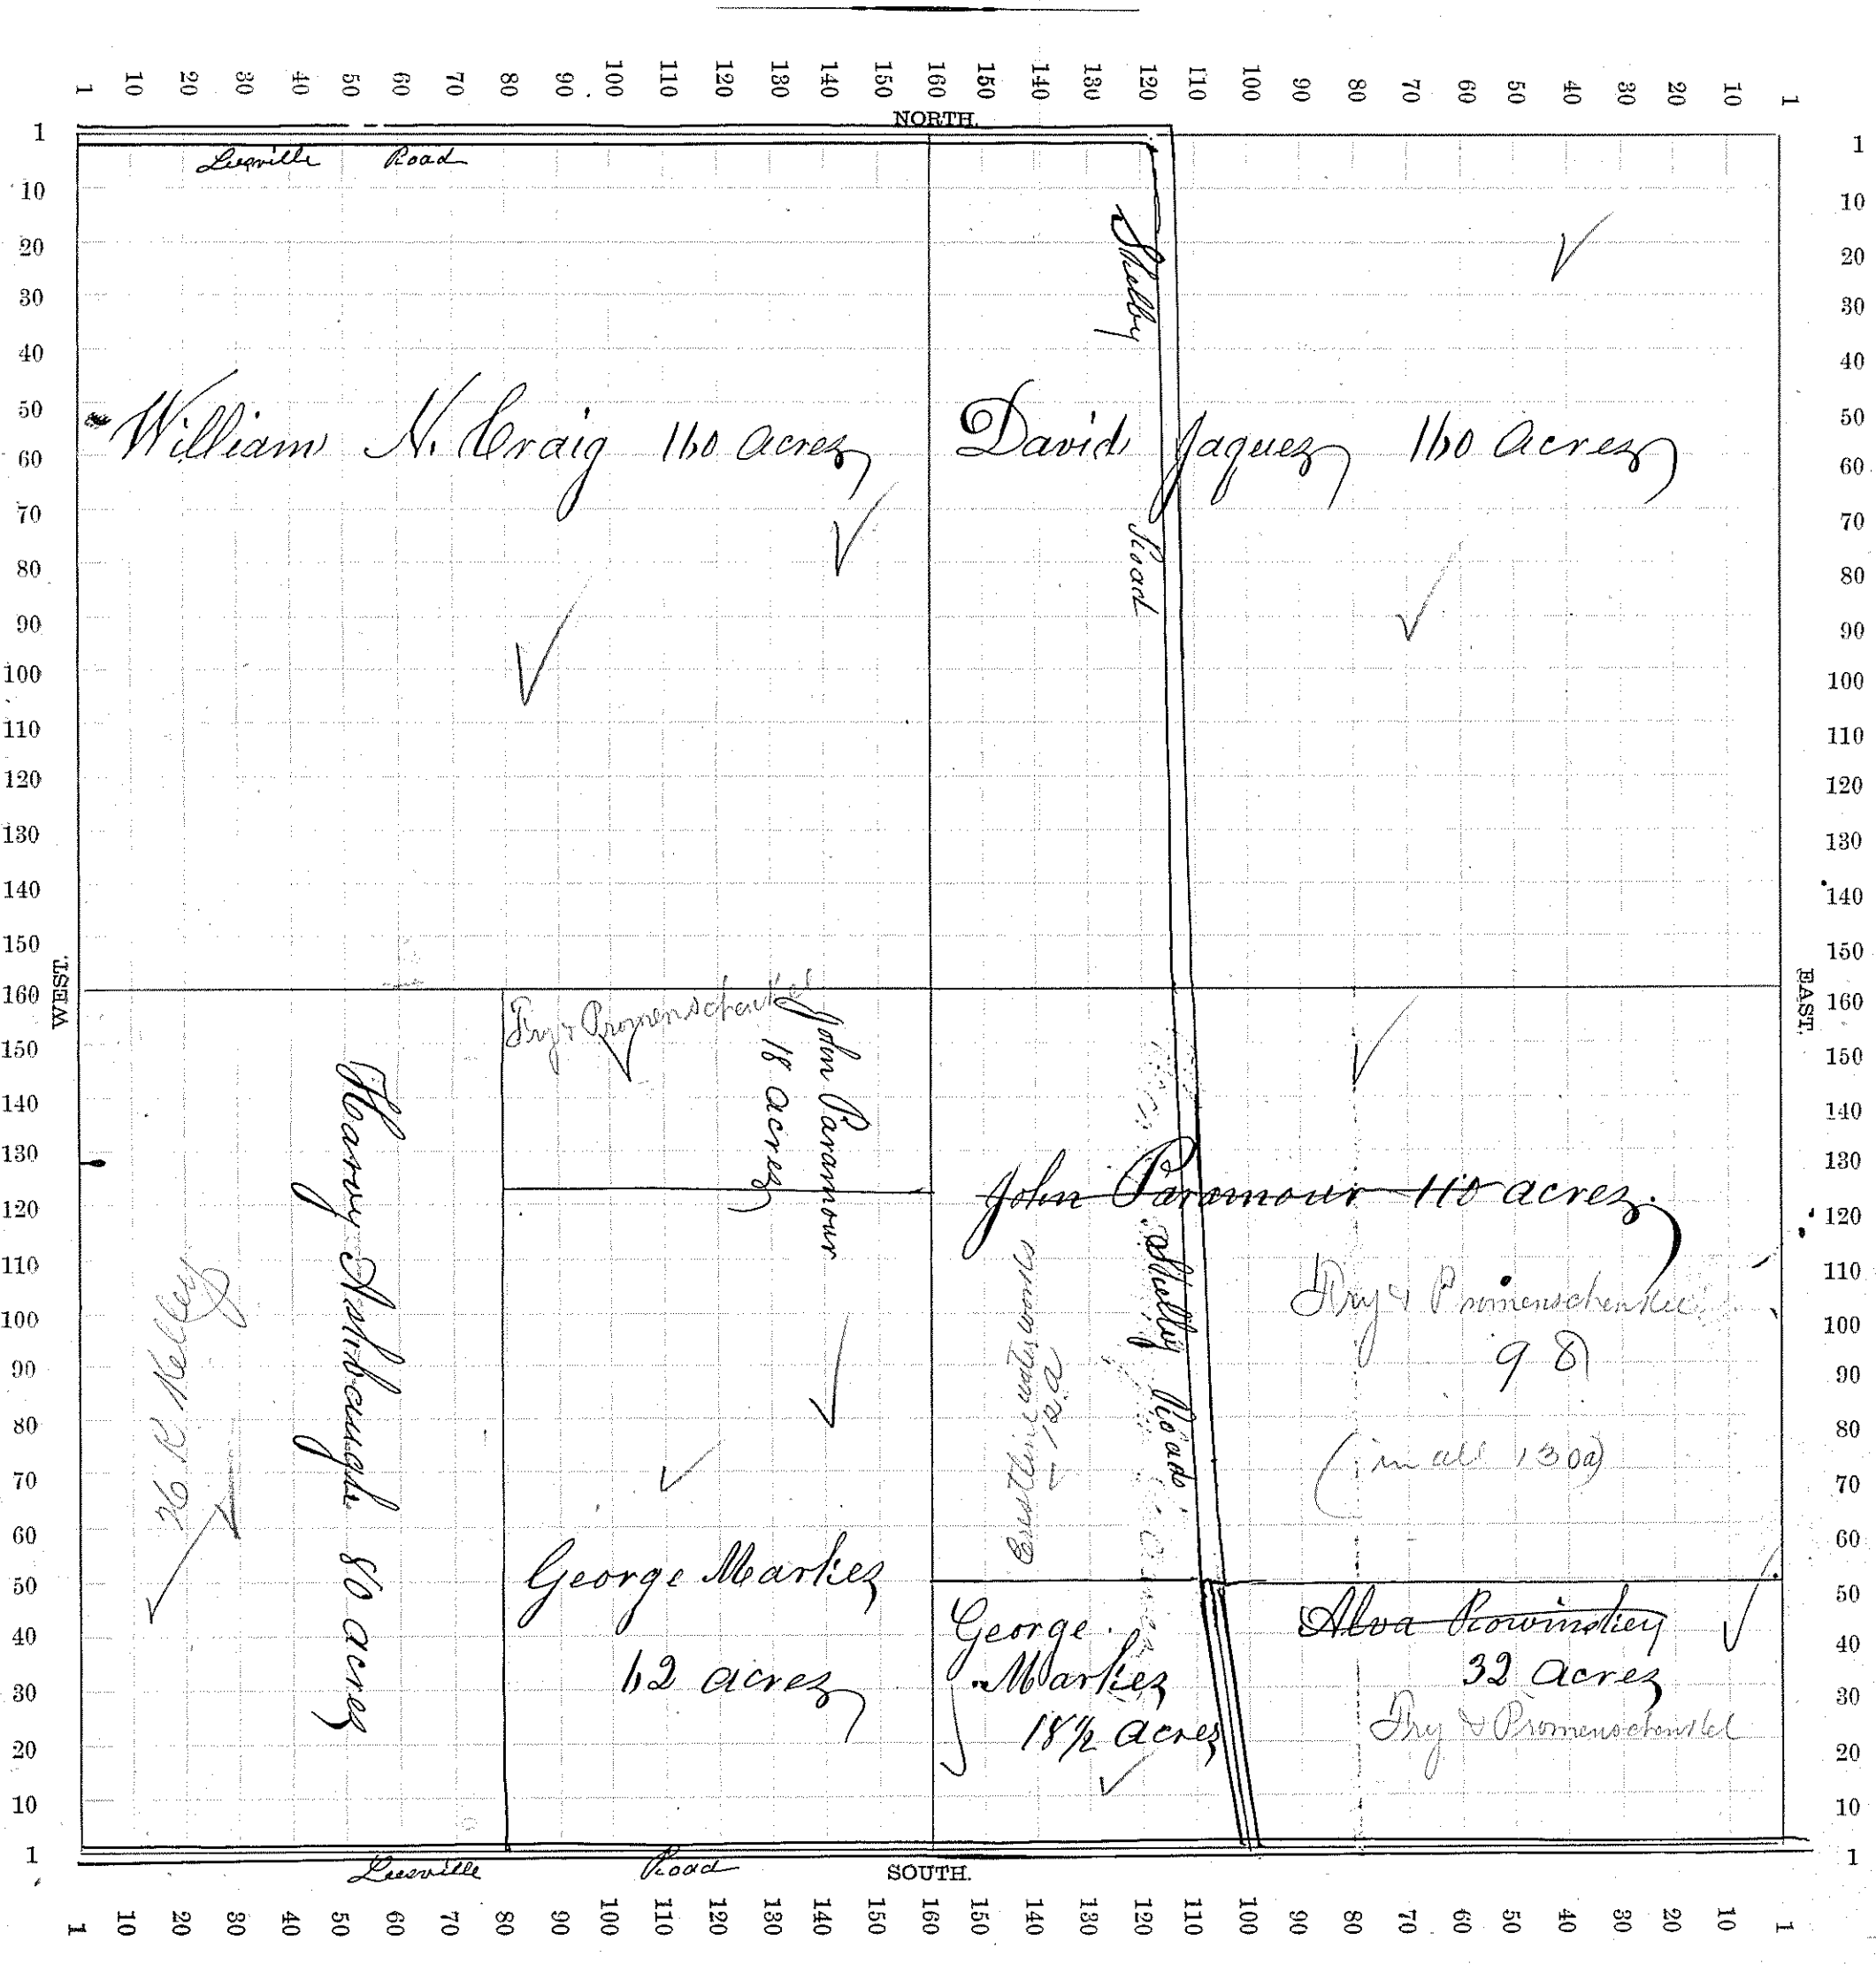 1 10 20 30 40 50 60 70 80 90 100 110 120 130 140 150 160 150 140 130 120 110 100 90 80 70 60 50 40 30 20 10 1
NORTH.
1 10 20 30 40 50 60 70 80 90 100 110 120 130 140 150 160 150 140 130 120 110 100 90 80 70 60 50 40 30 20 10 1
WEST.
Leesville Road
Shelby Road
William N. Craig 160 acres
David Jaques 160 acres
Fry & Promenschenkel
John Paramour
18 acres
Harvey Ashbaugh 80 acres
26 R Kelley
John Paramour 110 acres
Crestline waterworks
12 a
Shelby Road
Fry & Promenschenkel
98
(in all 130a)
George Markes
62 acres
George
Markes
18 1/2 acres
Alva
32 acres
Fry & Promenschenkel
1 10 20 30 40 50 60 70 80 90 100 110 120 130 140 150 160 150 140 130 120 110 100 90 80 70 60 50 40 30 20 10 1
EAST.
Leesville Road
SOUTH.
1 10 20 30 40 50 60 70 80 90 100 110 120 130 140 150 160 150 140 130 120 110 100 90 80 70 60 50 40 30 20 10 1